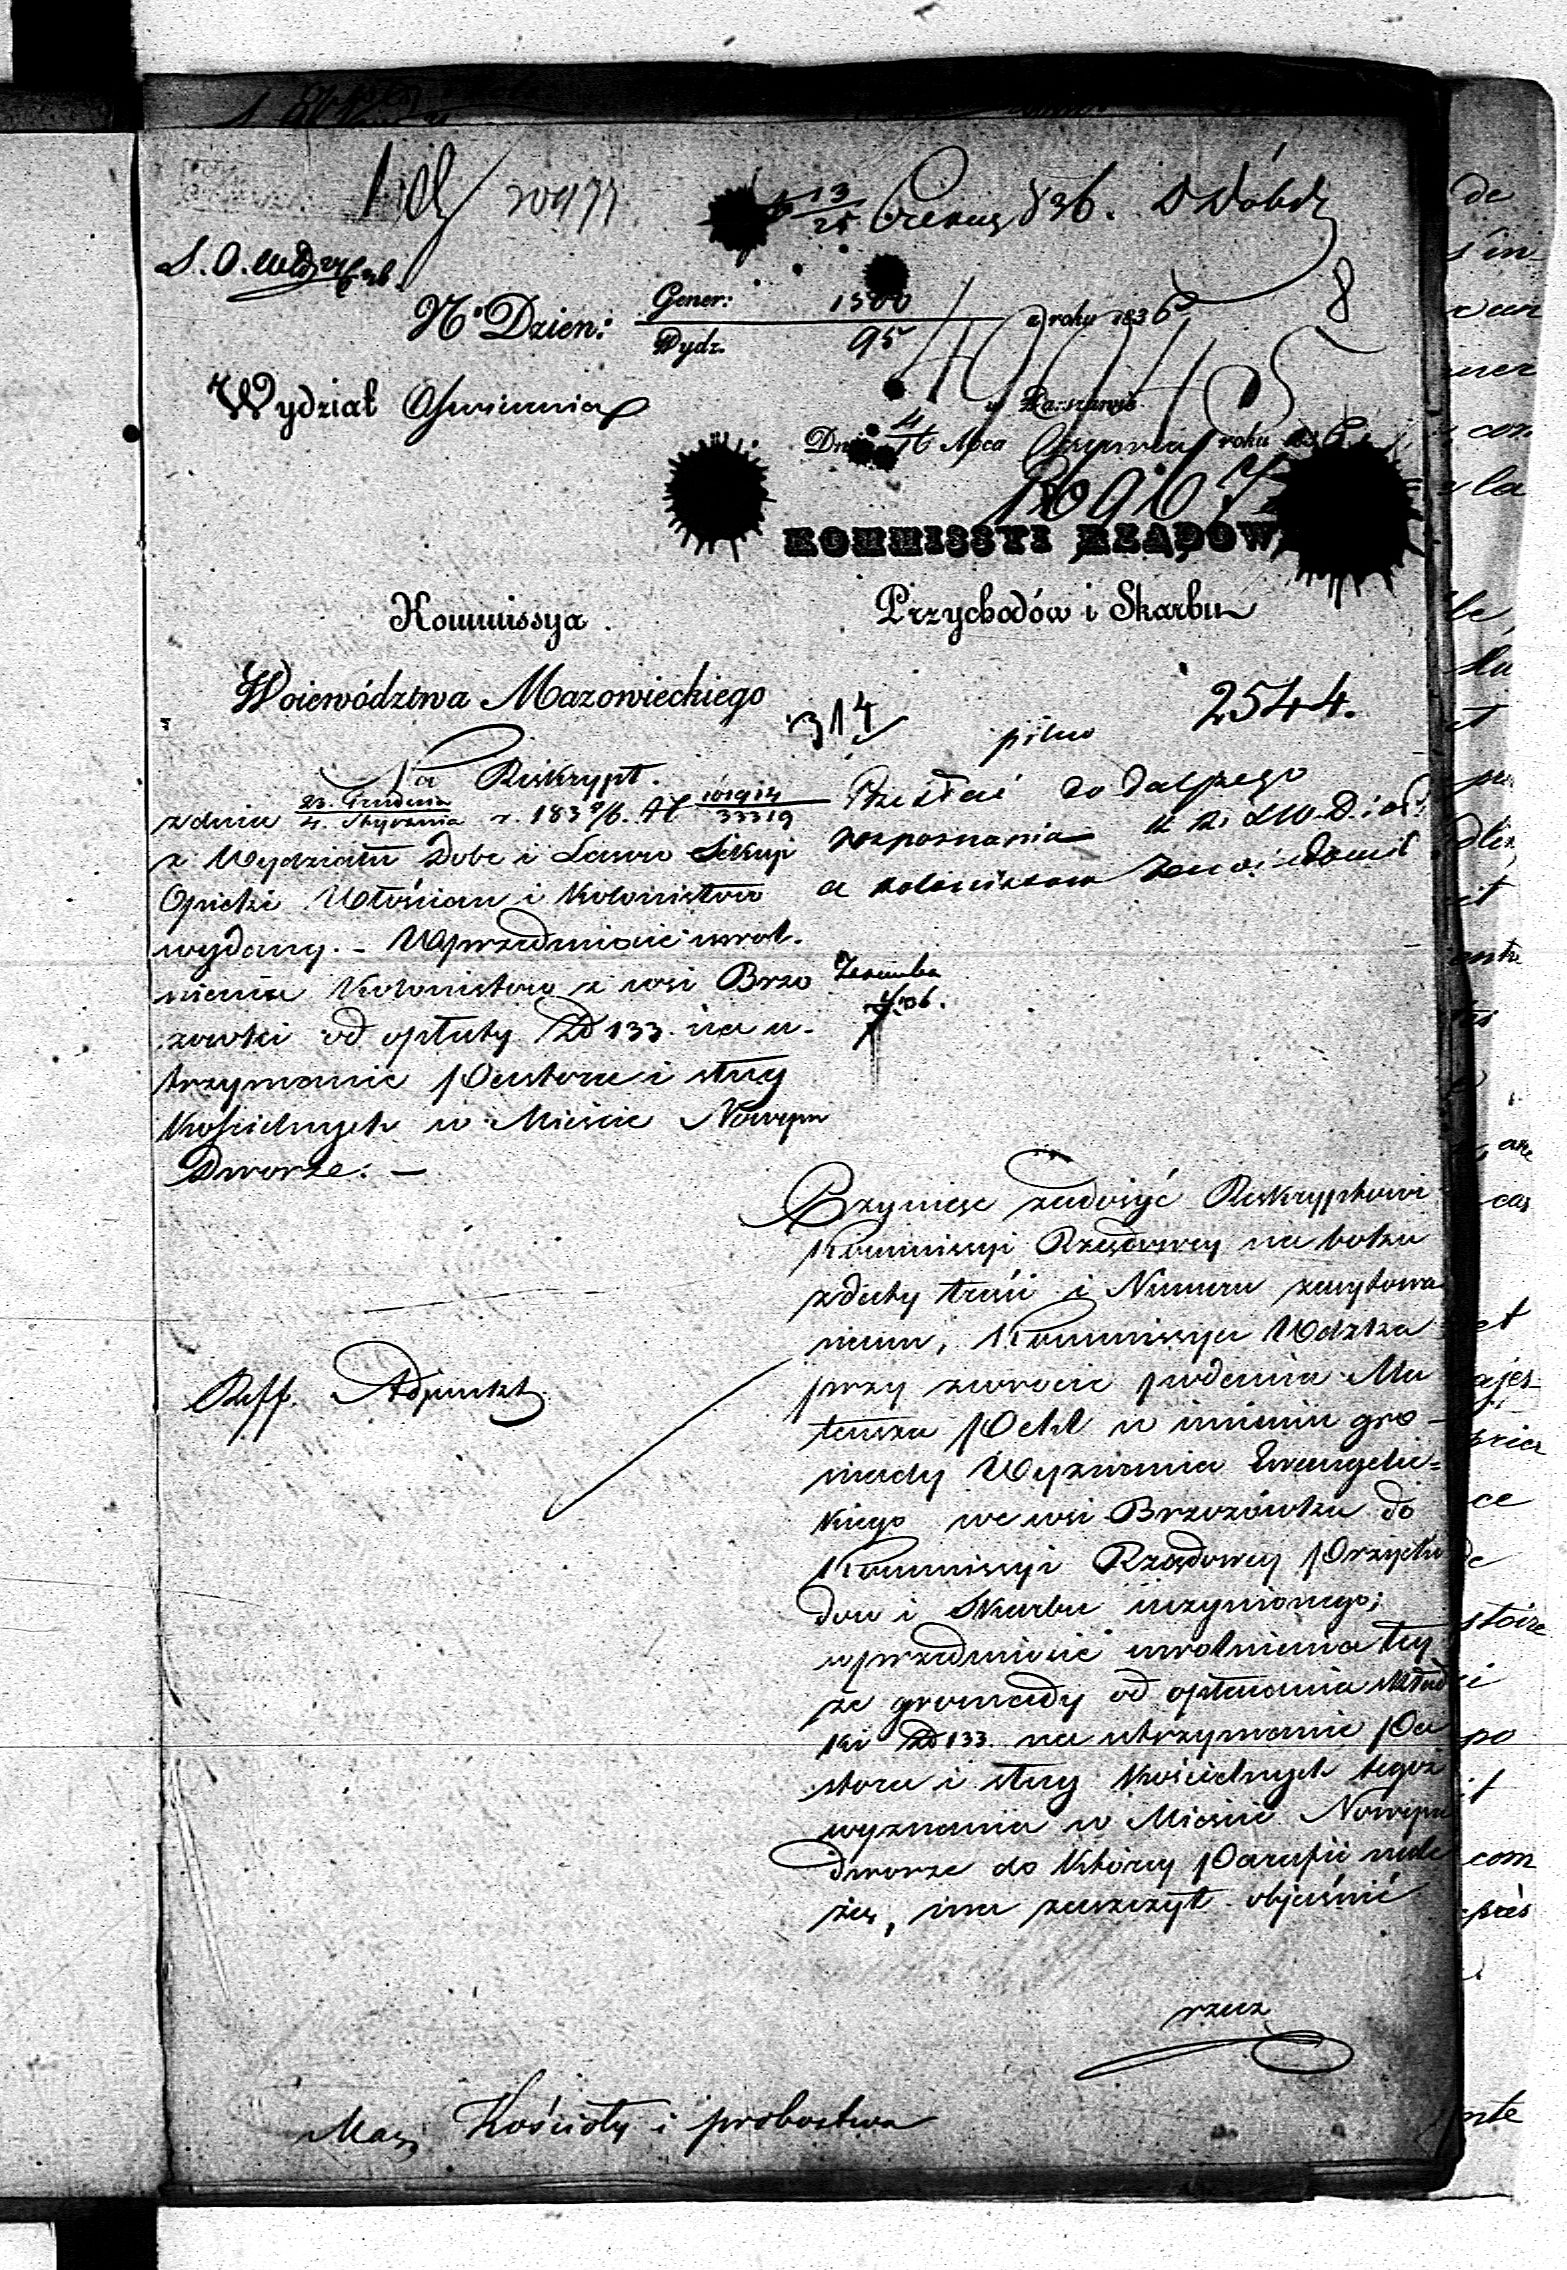 20977
13/25 Czerwc 836. D Dóbr
8
No Dzien: Gener: 1500 roku 1836
Wydz. 95
49045
Wydział Oświecenia
w Warszawie
Dnia 4/16 Mca Czerwca roku 1836
Do
KOMMISSYI RZĄDOW
Kommissya
Przychodów i Skarbu
Województwa Mazowieckiego
314
pilno
2544.
Na Reskrypt.
z dnia 23. Grudnia / 4. Stycznia r. 1835/6. N 101914/33319
z Wydziału Dobr i Lasow Sekcyi
Opieki Włościan i Kolonistow
wydany. – W przedmiocie uwol-
nienia Kolonistow z wsi Brzo
zowki od opłaty Zł 133. na u-
trzymanie Pastora i sług
Kościelnych w Mieście Nowym
Dworze. –
Przesłać do dalszego
rozpoznania
a kolonistow zawiadomić
Zaremba
Reff. Adjunkt
Czyniąc zadosyć Reskryptowi
Kommissyi Rządowey na boku
z daty treści i Numeru zacytowa
nemu, Kommissya Wdzka
przy zwrocie podania Ma
teusza Pehl w imieniu gro-
mady Wyznania Ewangelic=
kiego we wsi Brzozówka do
Kommissyi Rządowey Przycho
dow i Skarbu uczynionego;
w przedmiocie uwolnienia tey
że gromady od opłacania skład
ki Zł 133. na utrzymanie Pa
stora i sług Kościelnych tegoż
wyznania w Mieście Nowym
dworze do którey Parafii nale
żą, ma zaszczyt objaśnić
rzecz
Maz. Kościoły i probostwa